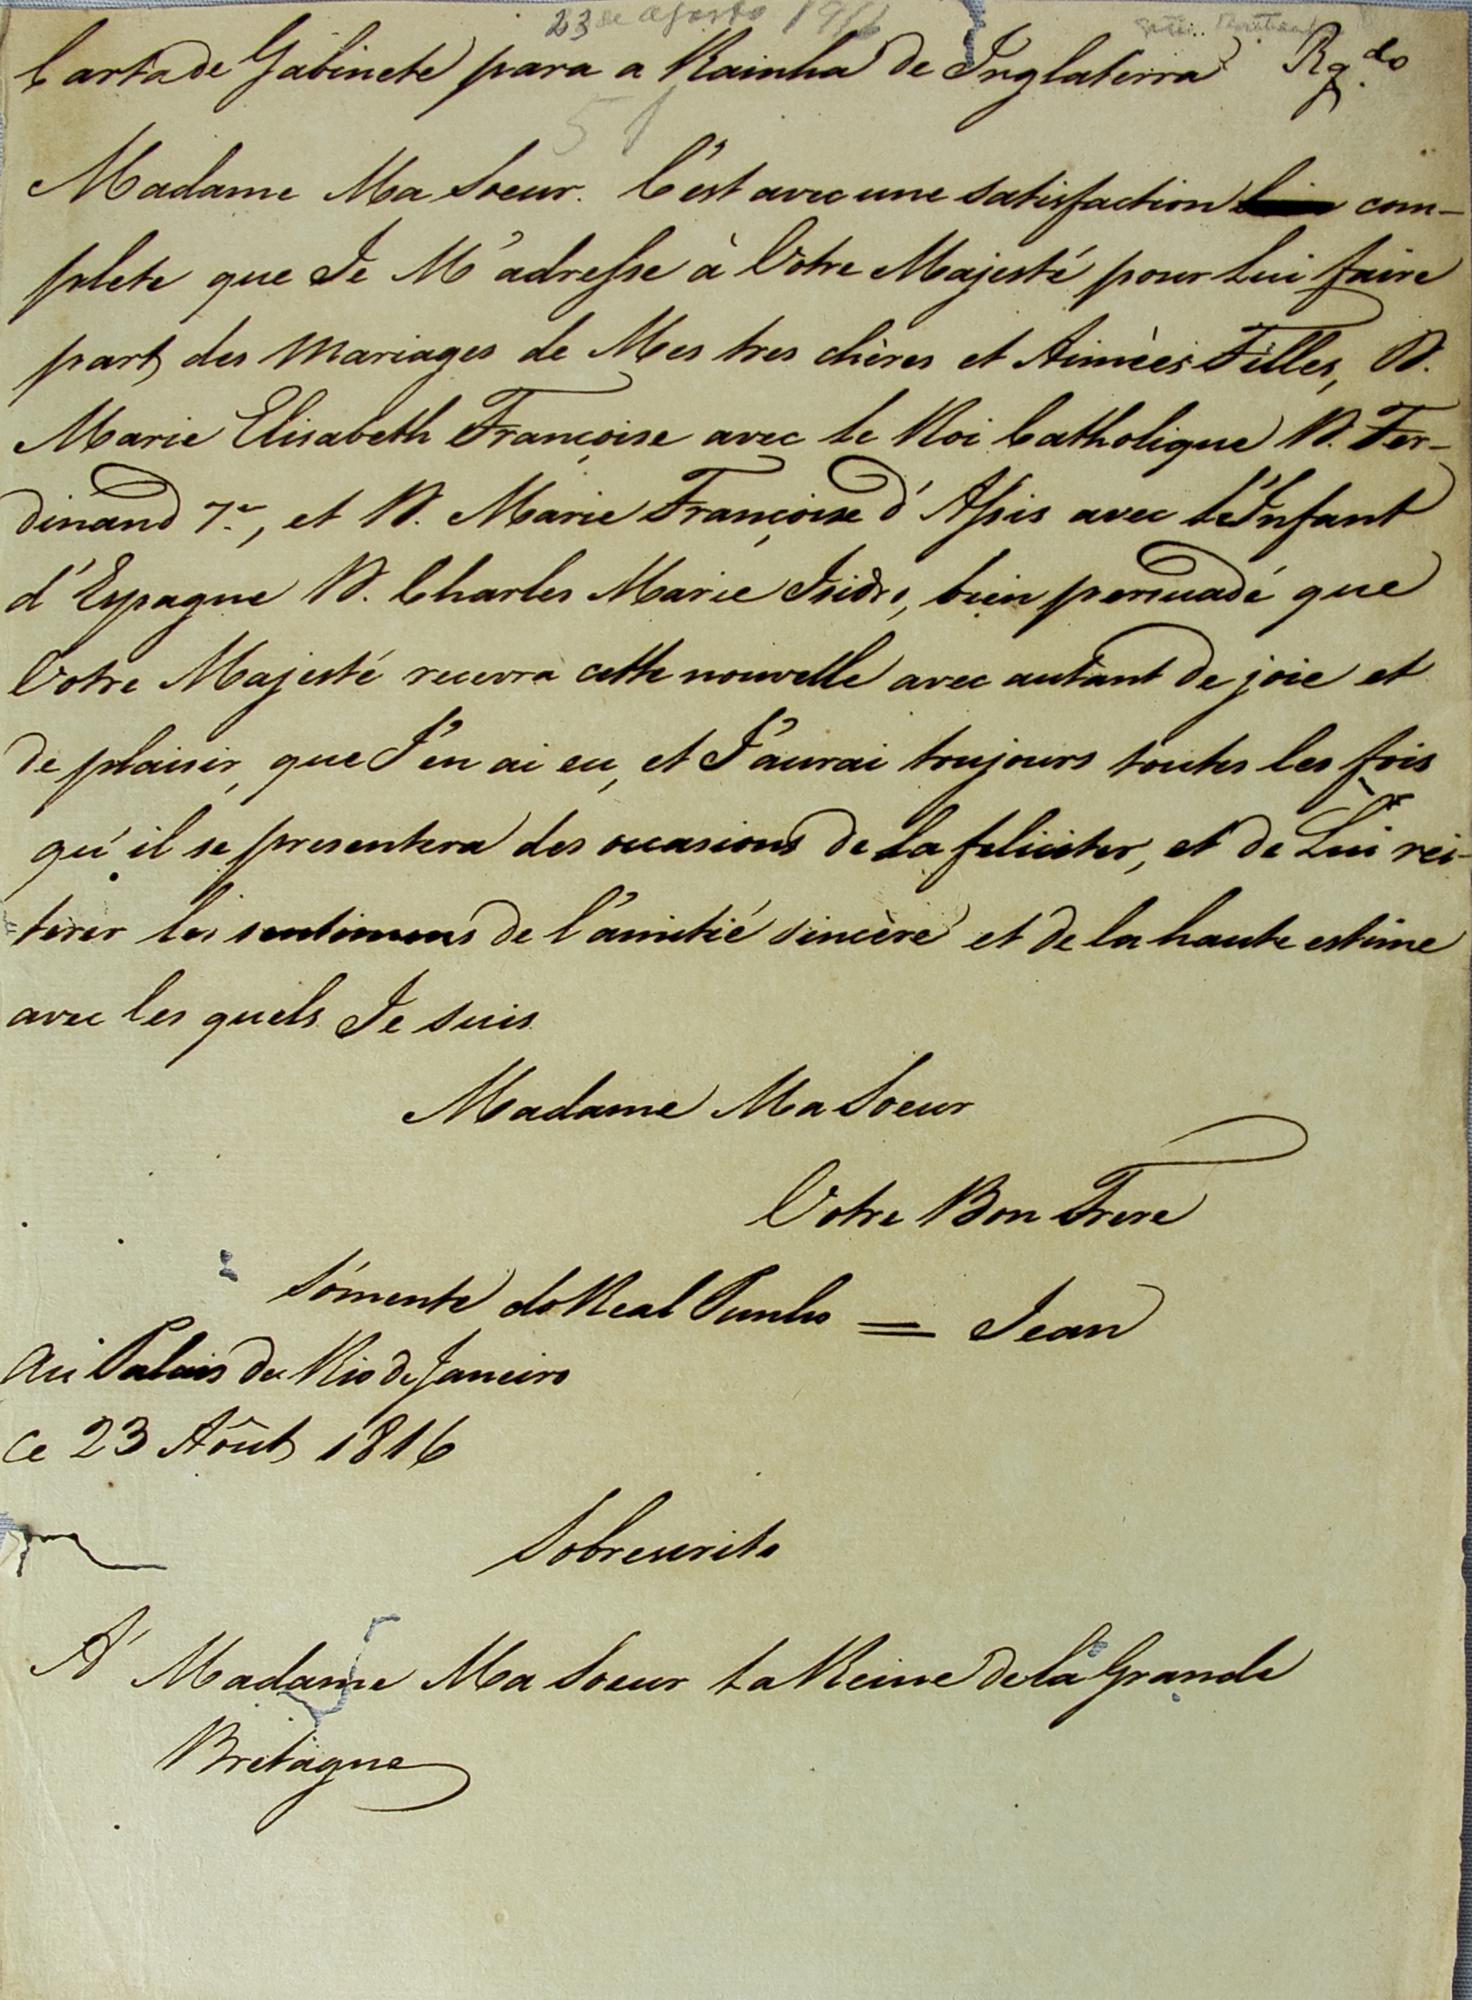 23 de agosto 1816
Carta de Gabinete para a Rainha de Inglaterra Rg.do
51
Madame Ma Soeur. C'est avec une satisfaction com-
plete que Je M'adresse à Votre Majesté pour Lui faire
part des Mariages de Mes tres chères et Aimèes Filles, D.
Marie Elisabeth Françoise avec le Roi Catholique D. Fer-
dinand 7.e, et D. Marie Françoise d'Assis avec L'Infant
d'Espagne D. Charles Marie Isidro, bien persuadé que
Votre Majesté recevra cette nouvelle avec autant de joie et
de plaisir, que J'en ai eu, et J'aurai toujours toutes les fois
qu'il se presentera des occasions de La feliciter, et de Lui rei-
terer les sentimens de l'amitié sincère et de la haute estime
avec les quels Je suis
Madame Ma Soeur
Votre Bon Frere
Sómente do Real Punho = Jean
Au Palais du Rio de Janeiro
ce 23 Aôut 1816
Sobrescrito
A' Madame Ma Soeur La Reine de la Grande
Bretagne